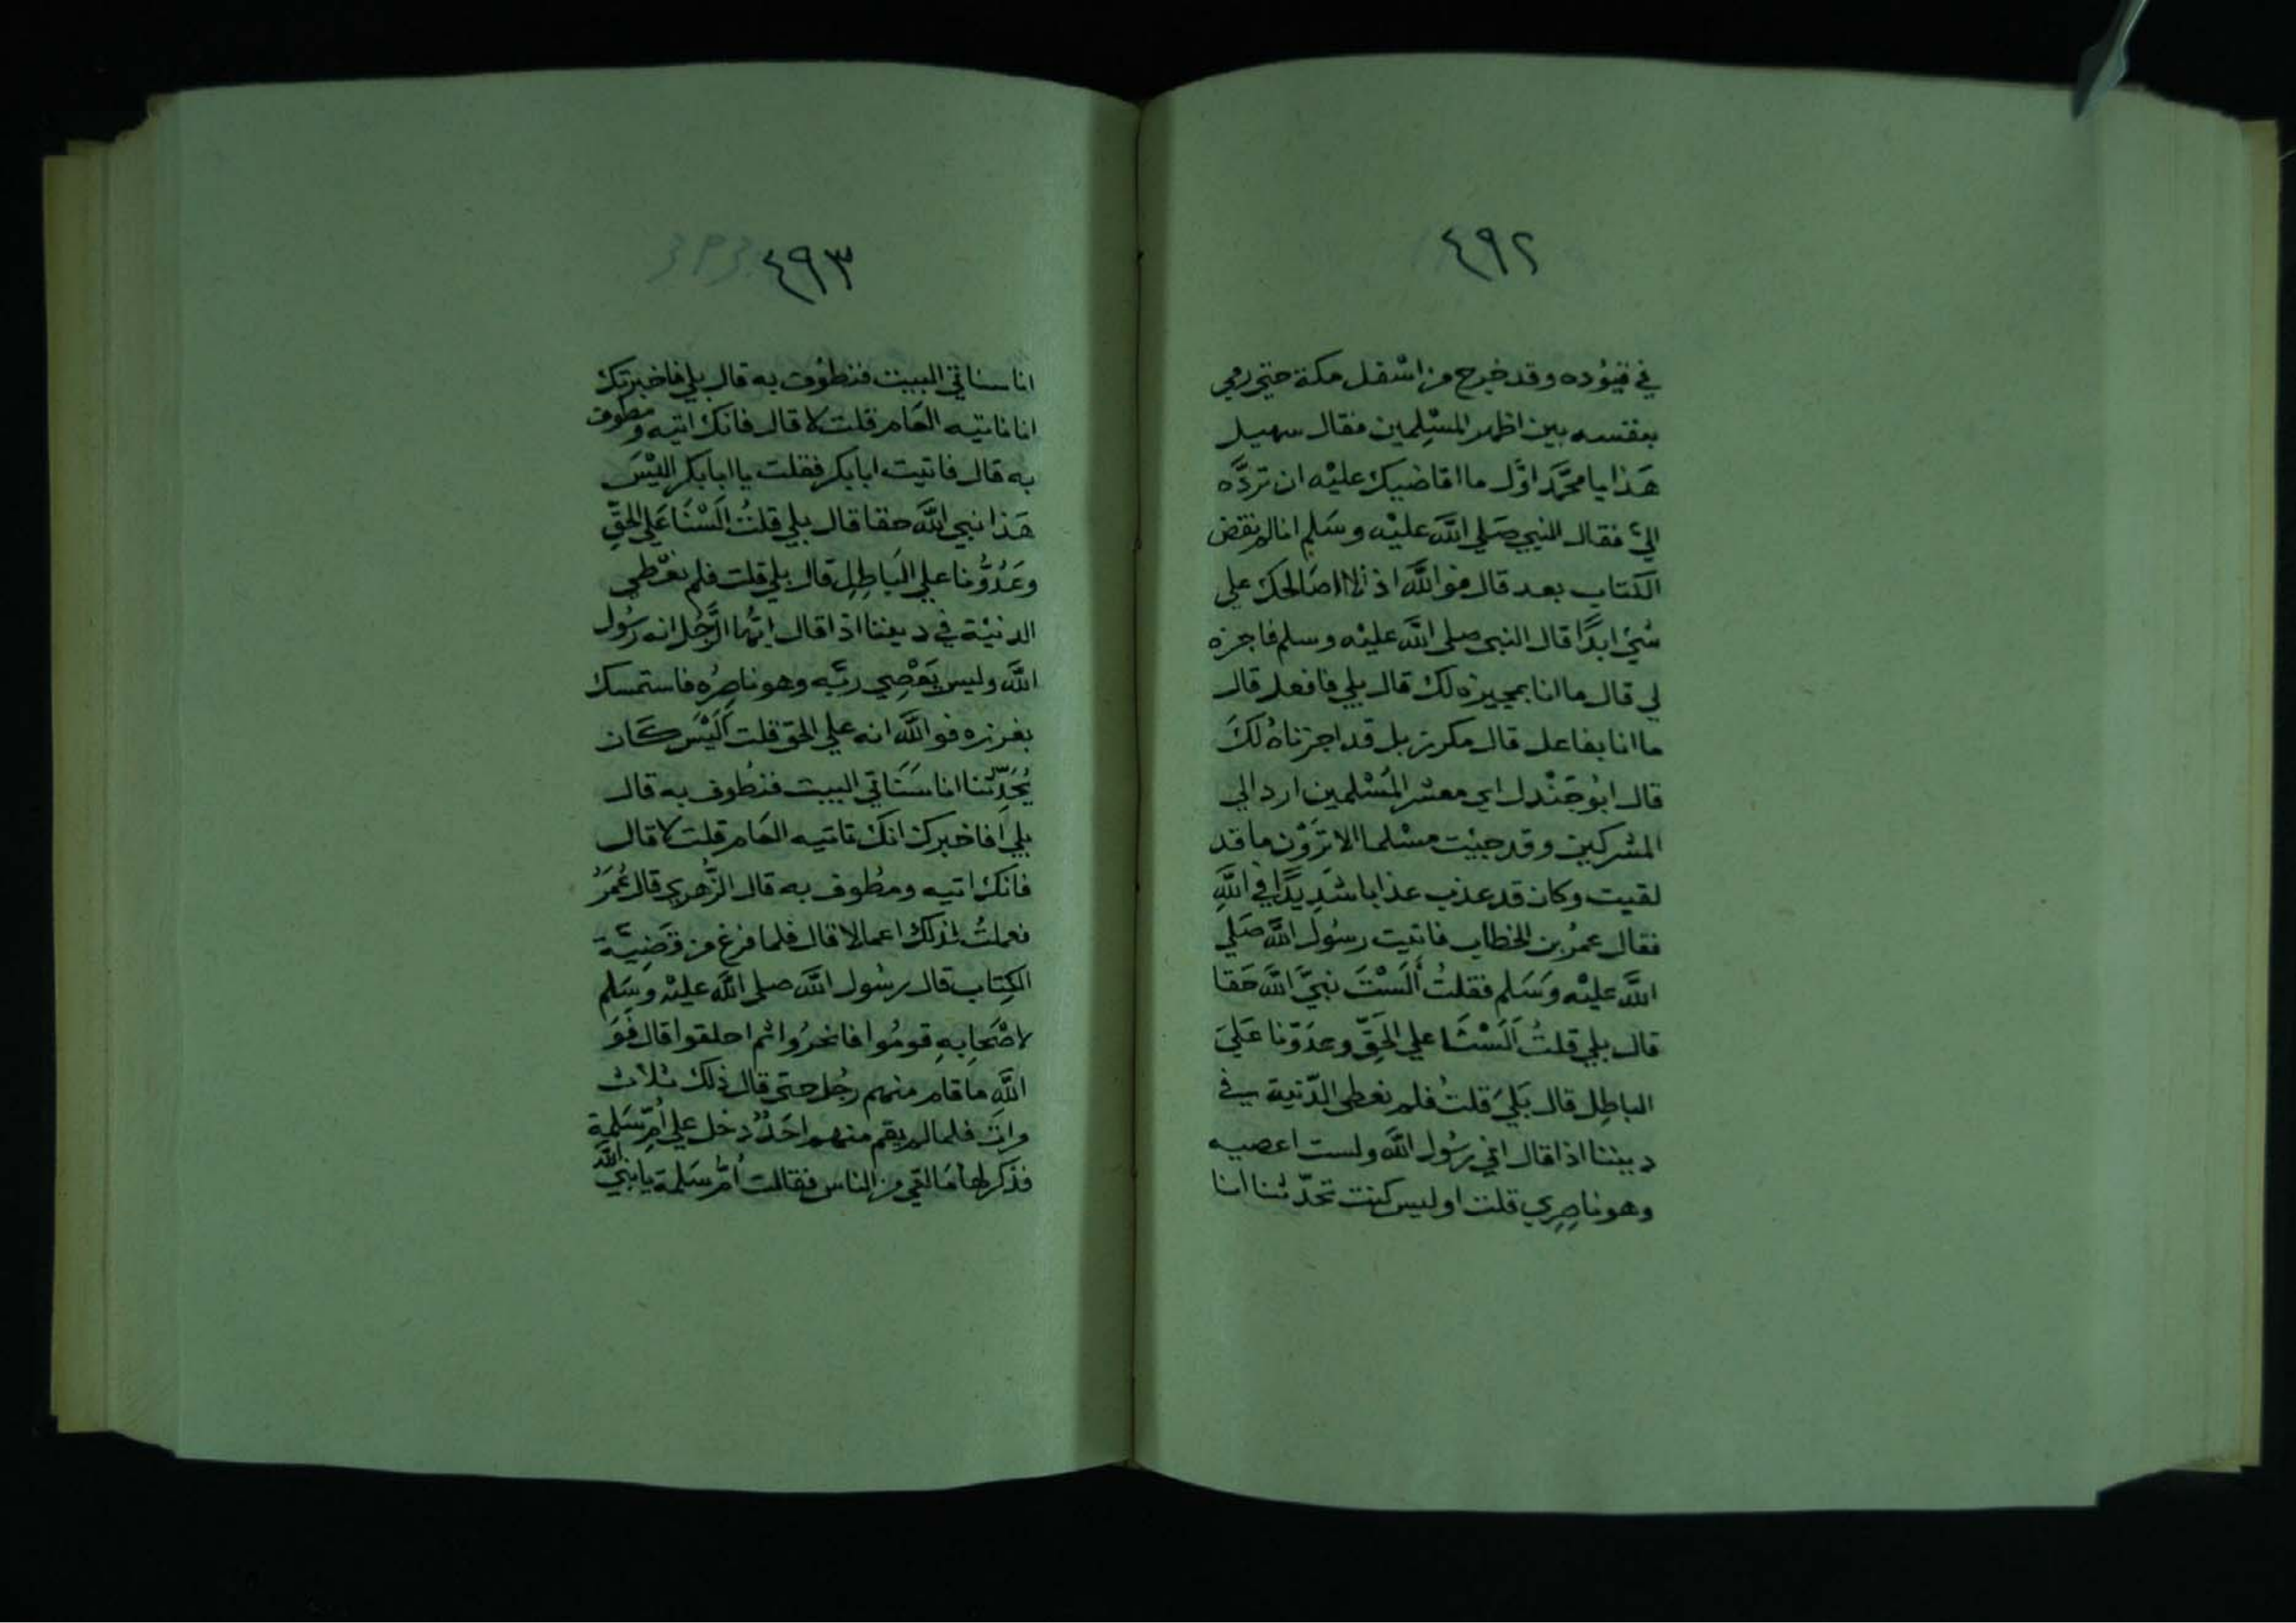 ٤٩٢
في قيوده وقد خرج من اسفل مكة حتي رمي
بنفسه بين اظهر المسْلِمين فقال سهيل
هَذا يا محمَّد اوَّل ما اقاضيك عليْه ان تردَّه
اليَّ فقال النبي صَلي اللَّه عليْه وسَلم انا لم نقض
الكتاب بعد قال فواللَّه اذًا لا اصَالحك علي
شيْ ابدًا قال النبي صلى اللَّه عليْه وسلم فاجزه
لي قال ما انا بمجيزه لك قال بلي فافعل قال
ما انا بفاعل قال مكرز بل قد اجزناهُ لكَ
قال ابُو جَنْدل اي معشر المُسْلمين ارد الي
المشركين وقد جيْت مسْلما الا ترَوْن ما قد
لقيت وكان قد عذب عذابا شَدِيدًا في اللَّهِ
فقال عمرُ بن الخطاب فاتيت رسُول اللَّه صَلي
اللَّه عليْه وَسَلم فقلتُ أَلَسْتَ نبيَّ اللَّه حَقا
قال بلي قلتُ أَلَسْنَا علي الحَقِّ وعدَوّنا عَلَيَ
الباطِل قال بَليَ قلتُ فلم نعطى الدّنية في
ديننا اذا قال اني رسُول اللَّه ولست اعصيه
وهو ناصِرِي قلت اوليس كنت تحدّثنا انا
٤٩٣
انا سناتي البيت فنطوُف به قال بلي فاخبرتك
انا ناتيه العَام قلت لا قال فانك اتيه ومطوف
به قال فاتيت ابا بكر فقلت يا ابا بكر اليْسَ
هَذا نبي اللَّه حقا قال بلي قلتُ اَلَسْنَا عَلي الحَقِّ
وعَدُوُّنا علي البَاطِلِ قال بلي قلت فلم نعْطي
الدنيْة في ديننا اذا قال ايُّها الرَّجُل انه رَسُول
اللَّه وليس يَعْصِي ربَّه وهو ناصِرُه فاستمسك
بغرزه فواللَّه انه علي الحق قلت أَلَيْسَ كَان
يُحَدِّثنا انا سَنَاتي البيت فنطُوف به قال
بلي اَفاخبرك انك تاتيه العَام قلت لا قال
فانك اتيه ومطوف به قال الزُّهري قال عُمَرُ
فعملتُ لذلك اعمالا قال فلما فرغ من قضِيَّة
الكِتاب قال رسُول اللَّه صلى اللَّه عليْه وسَلم
لاصْحَابِهِ قومُوا فانحرُوا ثم احلقوا قال فَوَ
اللَّهِ ما قام منهم رجُل حتى قال ذلك ثلاث
مرات فلما لم يقم منهم احَدٌ دخل علي اُمِّ سَلمة
فذكر لها مَا لقي من الناس فقالت اُمُّ سَلمة يا نبيَّ اللَّه